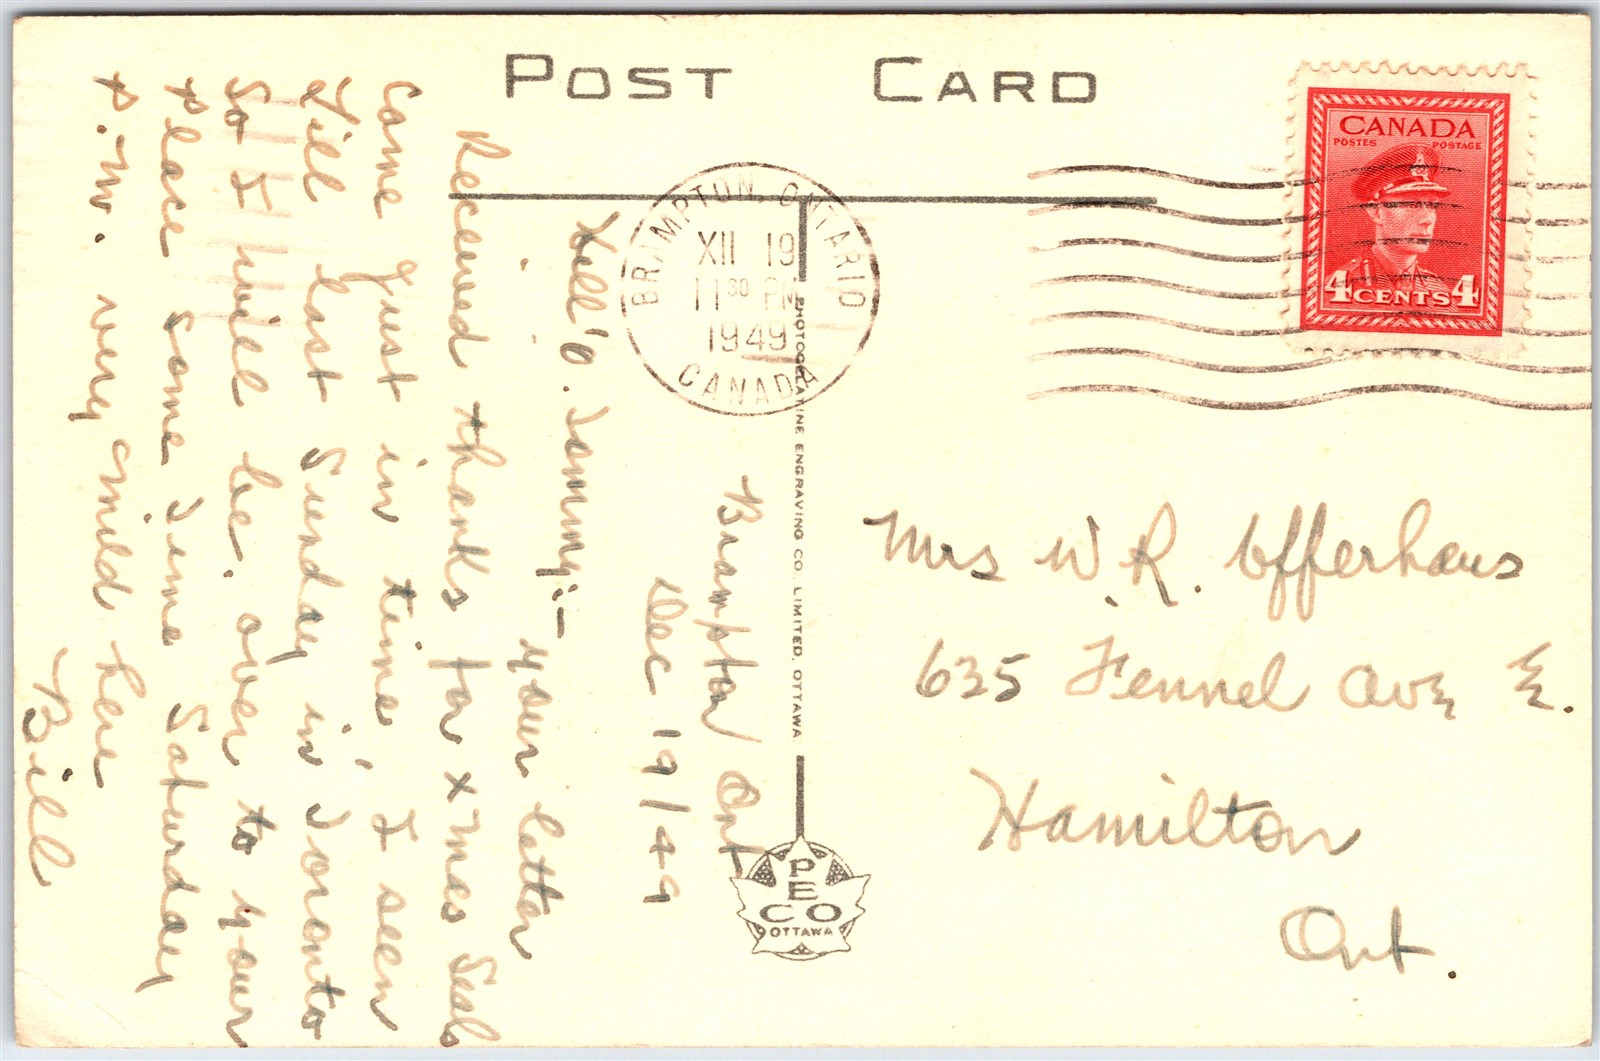 POST CARD
CANADA
POSTES POSTAGE
4 CENTS 4
BRAMPTON, ONTARIO
XII 19
11 30 PM
1949
CANADA
PHOTOGELATINE ENGRAVING CO. LIMITED, OTTAWA.
PECO
OTTAWA
Brampton Ont
Dec 19/49
Hell'o. Tommy:-
your letter
Received thanks for xmas Seals
Came just in time, I seen
Till last Sunday in Toronto
So I will be over to your
place some time Saturday
P.M. very mild here
Bill
Mrs W.R. Offerhaus
635 Fennel Ave E.
Hamilton
Ont.